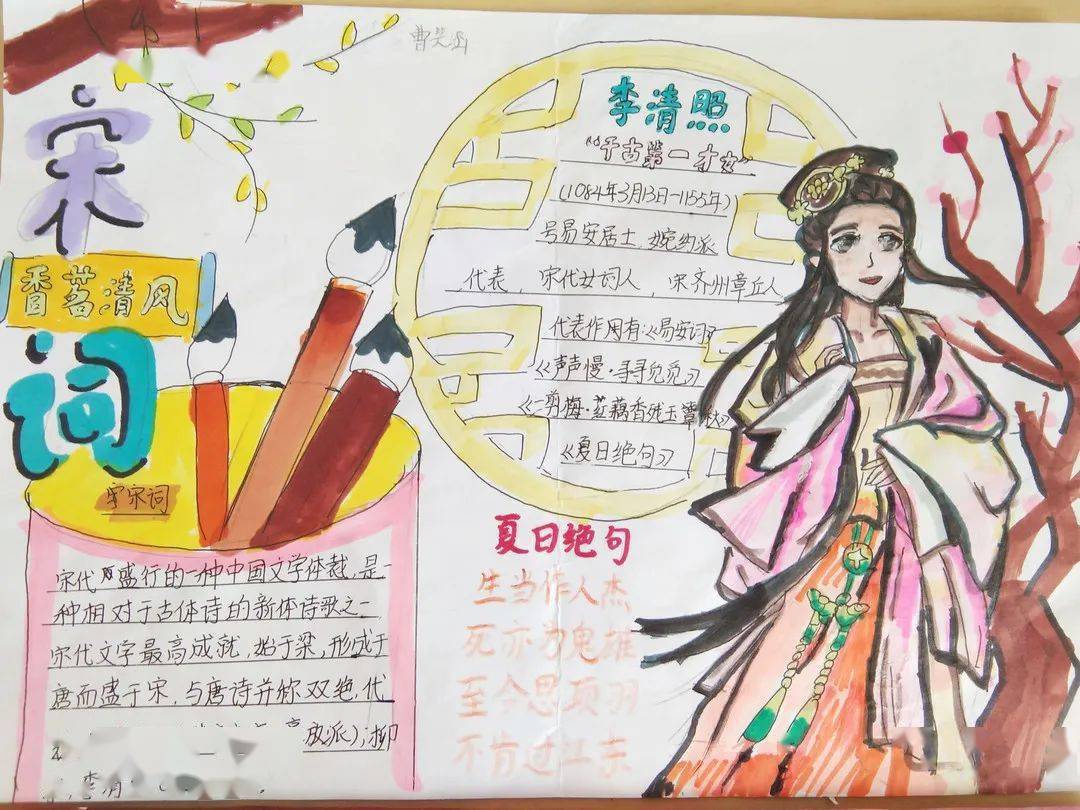 曹笑涵
宋
香茗清风
词
宋宋词
宋代盛行的一种中国文学体裁,是一
种相对于古体诗的新体诗歌之一
宋代文字最高成就,始于梁,形成于
唐而盛于宋,与唐诗并称双绝,代
放派);柳
李清
李清照
"千古第一才女"
(1084年3月13日—1155年)
号易安居士,婉约派
代表,宋代女词人,宋齐州章丘人
代表作用有:《易安词》
《声声慢·寻寻觅觅》
《一剪梅·红藕香残玉簟秋》
《夏日绝句》
夏日绝句
生当作人杰
死亦为鬼雄
至今思项羽
不肯过江东